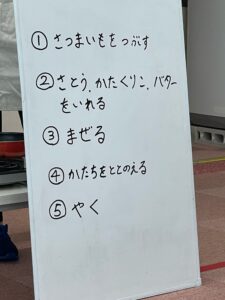 ① さつまいもをつぶす
② さとう、かたくりこ、バター
をいれる
③ まぜる
④ かたちをととのえる
⑤ やく